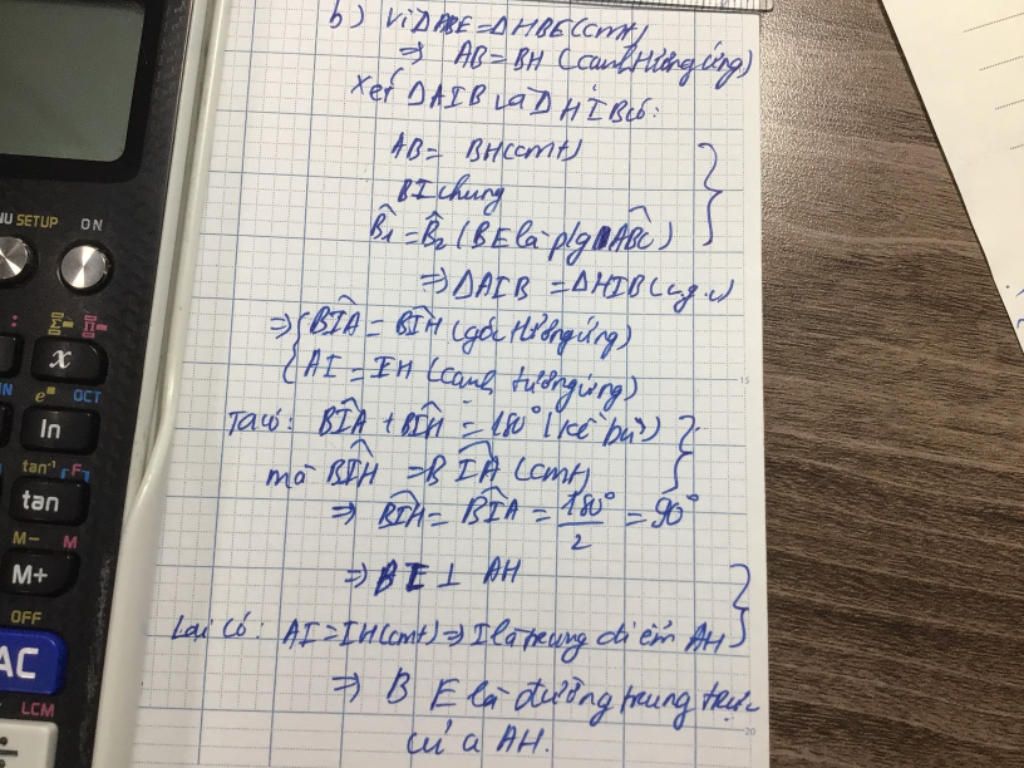 b) Vì ΔABE = ΔHBE (cmt)
⇒ AB = BH (cạnh tương ứng)
Xét ΔAIB và ΔHIB có:
AB = BH (cmt)
BI chung
B̂1 = B̂2 (BE là p/g ABC)
⇒ ΔAIB = ΔHIB (c.g.c)
⇒ { BIA = BIH (góc tương ứng)
AI = IH (cạnh tương ứng)
Ta có: BIA + BIH = 180° (kề bù)
mà BIH = BIA (cmt)
⇒ BIH = BIA = 180°/2 = 90°
⇒ BE ⊥ AH
Lại có: AI = IH (cmt) ⇒ I là trung điểm AH
⇒ BE là đường trung trực
của AH.
15
20
MENU SETUP ON
x
IN e■ OCT
ln
tan⁻¹ F
tan
M− M
M+
OFF
AC
LCM